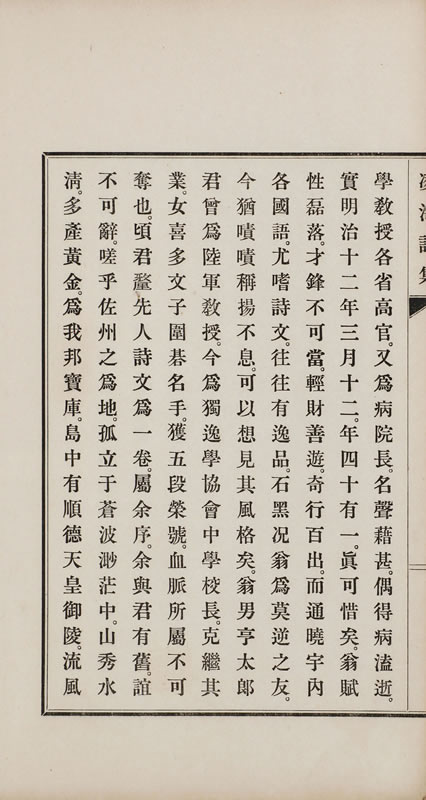 學教授各省高官。又爲病院長。名聲藉甚。偶得病溘逝。
實明治十二年三月十二。年四十有一。眞可惜矣。翁賦
性磊落。才鋒不可當。輕財善遊。奇行百出。而通曉宇內
各國語。尤嗜詩文。往往有逸品。石黑況翁爲莫逆之友。
今猶嘖嘖稱揚不息。可以想見其風格矣。翁男亨太郎
君曾爲陸軍敎授。今爲獨逸學協會中學校長。克繼其
業。女喜多文子圍碁名手。獲五段榮號。血脈所屬不可
奪也。頃君釐先人詩文爲一卷。屬余序。余與君有舊。誼
不可辭。嗟乎佐州之爲地。孤立于蒼波渺茫中。山秀水
淸。多產黃金。爲我邦寶庫。島中有順德天皇御陵。流風